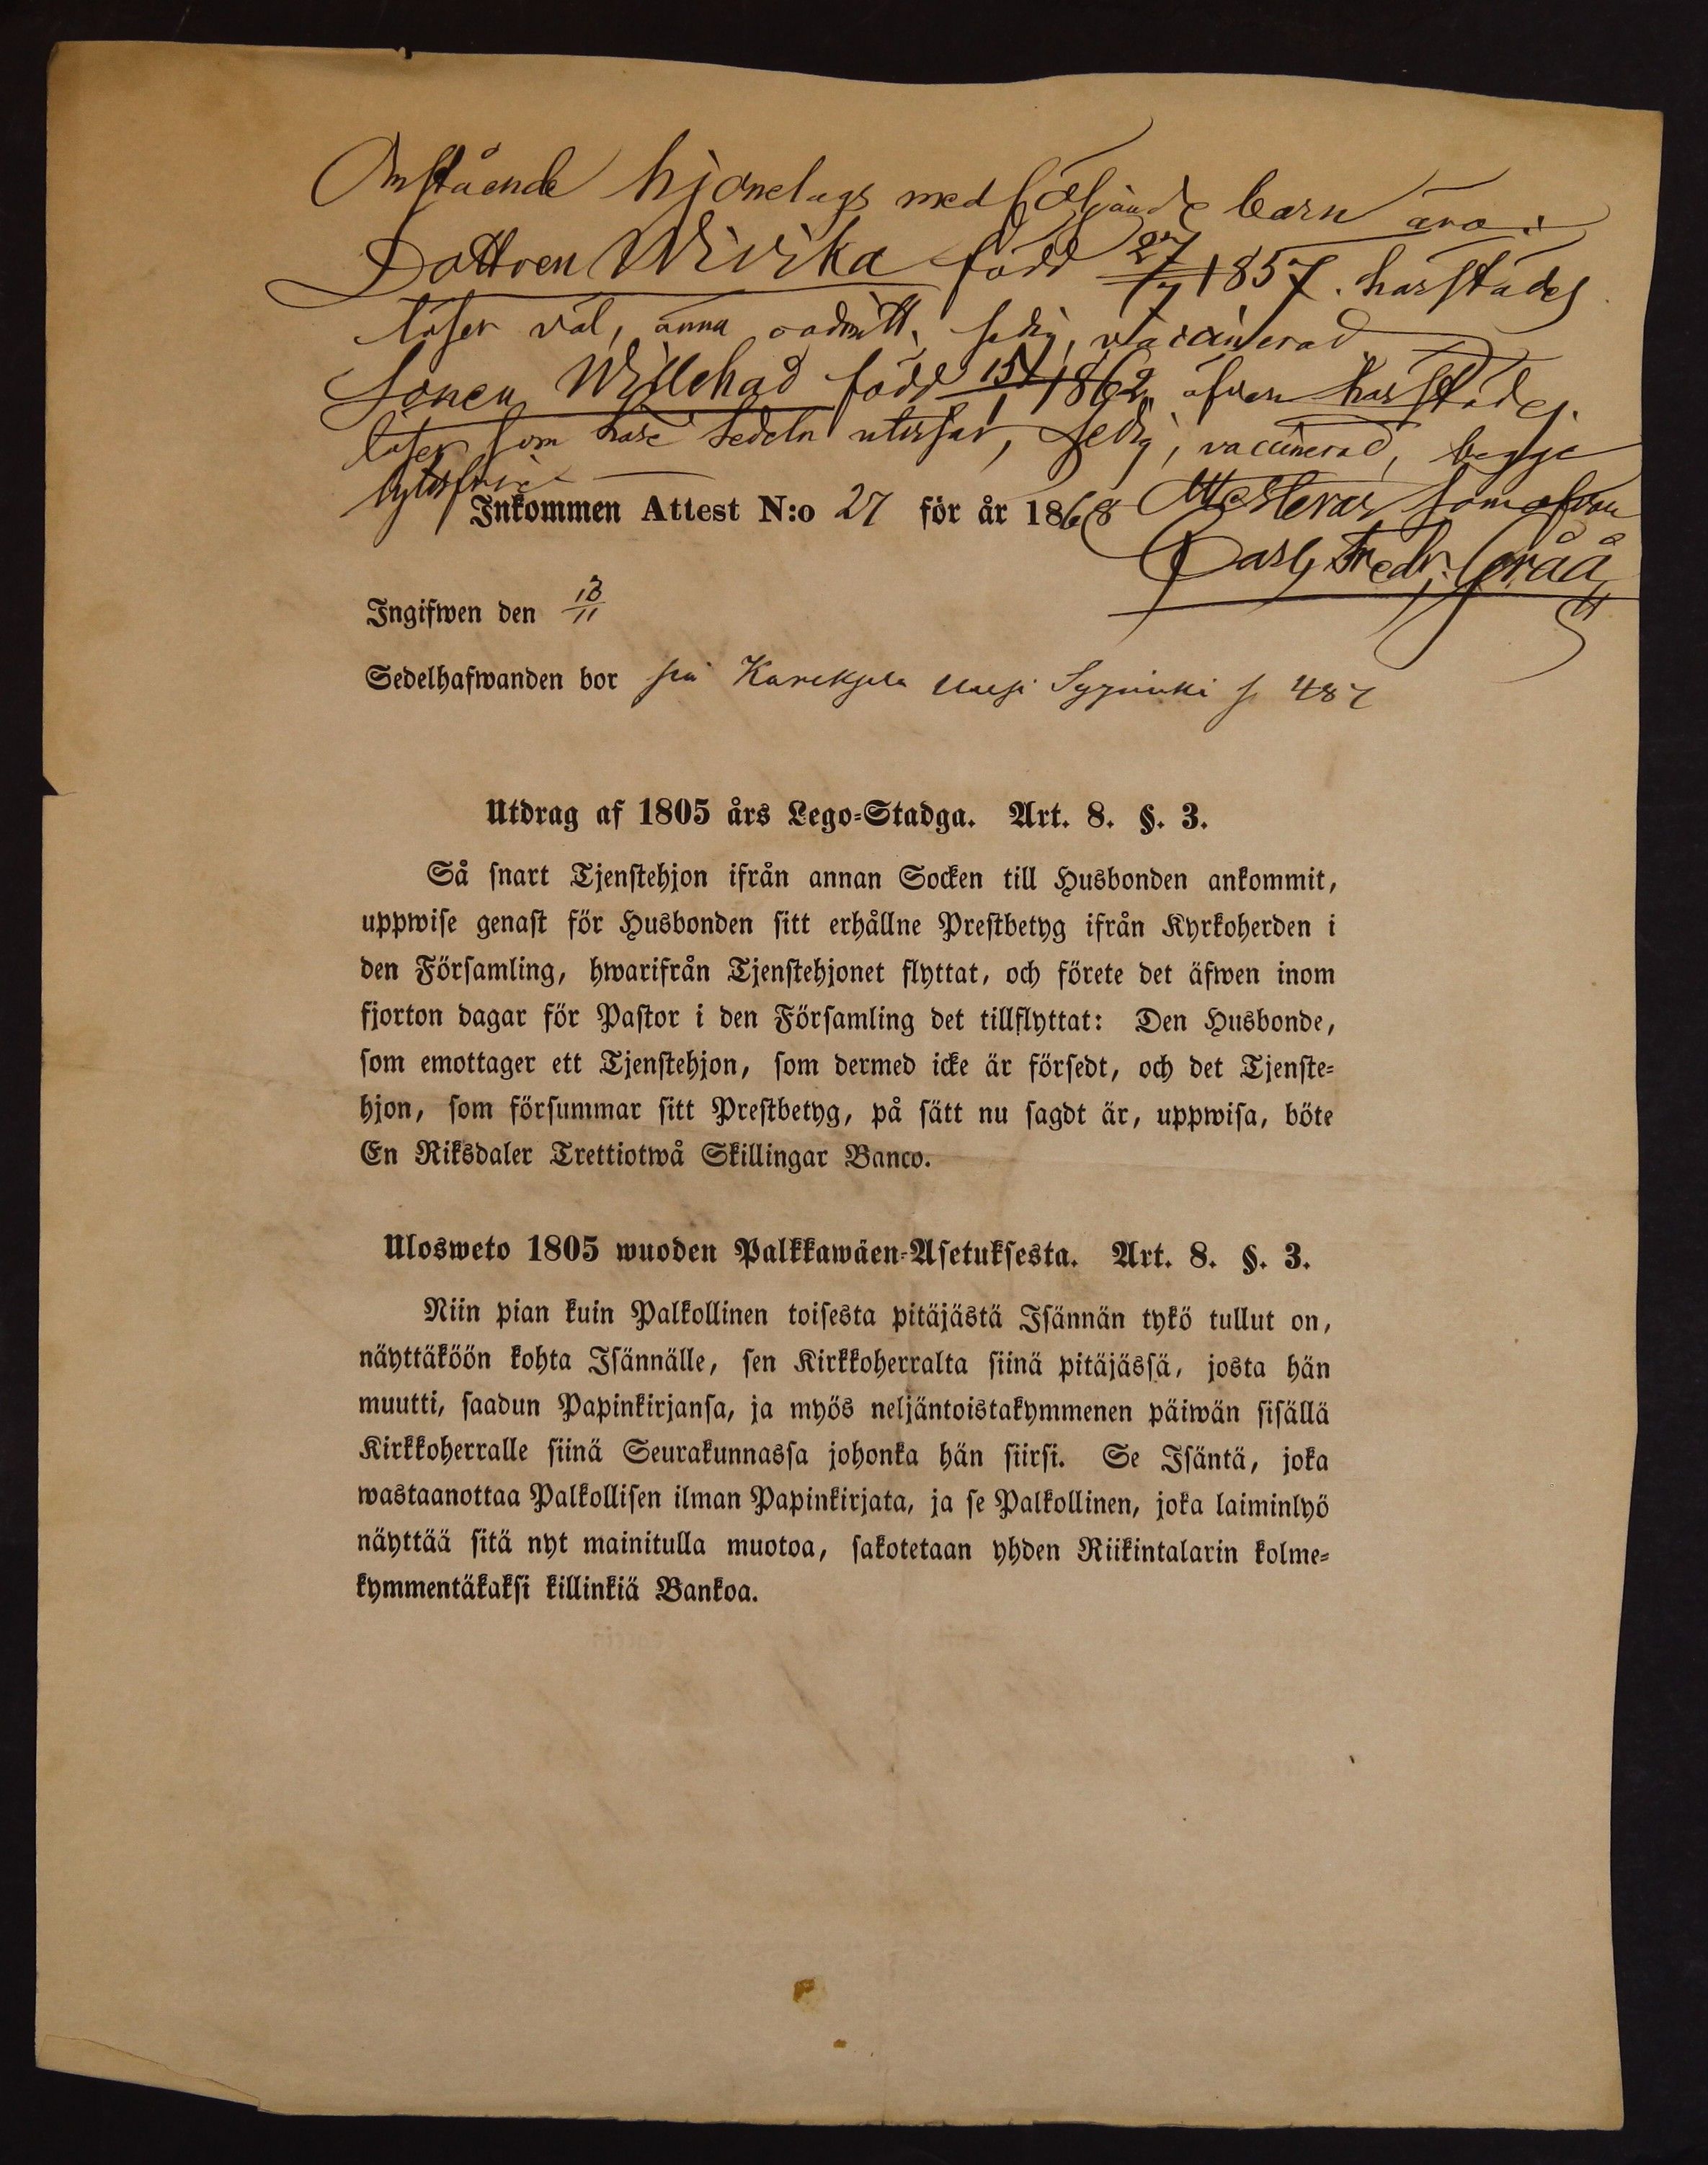 Omstående hjonelags medföljande barn äro:
Dottren Wivika född 27/7 1857. härstädes
läser väl, ännu oadmitt. sedig, vaccinerad
Sonen Willehad född 15/1 1862, äfven härstädes.
läser som hans sedeln utvisar, sedig, vaccinerad, begge
lytesfria
Inkommen Attest N:o 27 för år 1868 Attesteras som ofvan
Carl Fredr. Gråå
Ingifwen den 13/11
Sedelhafwanden bor på Karekjela Uusi p 487
Utdrag af 1805 års Lego-Stadga. Art. 8. §. 3.
Så snart Tjenstehjon ifrån annan Socken till Husbonden ankommit,
uppwise genast för Husbonden sitt erhållne Prestbetyg ifrån Kyrkoherden i
den Församling, hwarifrån Tjenstehjonet flyttat, och förete det äfwen inom
fjorton dagar för Pastor i den Församling det tillflyttat: Den Husbonde,
som emottager ett Tjenstehjon, som dermed icke är försedt, och det Tjenste-
hjon, som försummar sitt Prestbetyg, på sätt nu sagdt är, uppwisa, böte
En Riksdaler Trettiotwå Skillingar Banco.
Ulosweto 1805 wuoden Palkkawäen-Asetuksesta. Art. 8. §. 3.
Niin pian kuin Palkollinen toisesta pitäjästä Isännän tykö tullut on,
näyttäköön kohta Isännälle, sen Kirkkoherralta siinä pitäjässä, josta hän
muutti, saadun Papinkirjansa, ja myös neljäntoistakymmenen päiwän sisällä
Kirkkoherralle siinä Seurakunnassa johonka hän siirsi. Se Isäntä, joka
wastaanottaa Palkollisen ilman Papinkirjata, ja se Palkollinen, joka laiminlyö
näyttää sitä nyt mainitulla muotoa, sakotetaan yhden Riikintalarin kolme-
kymmentäkaksi killinkiä Bankoa.